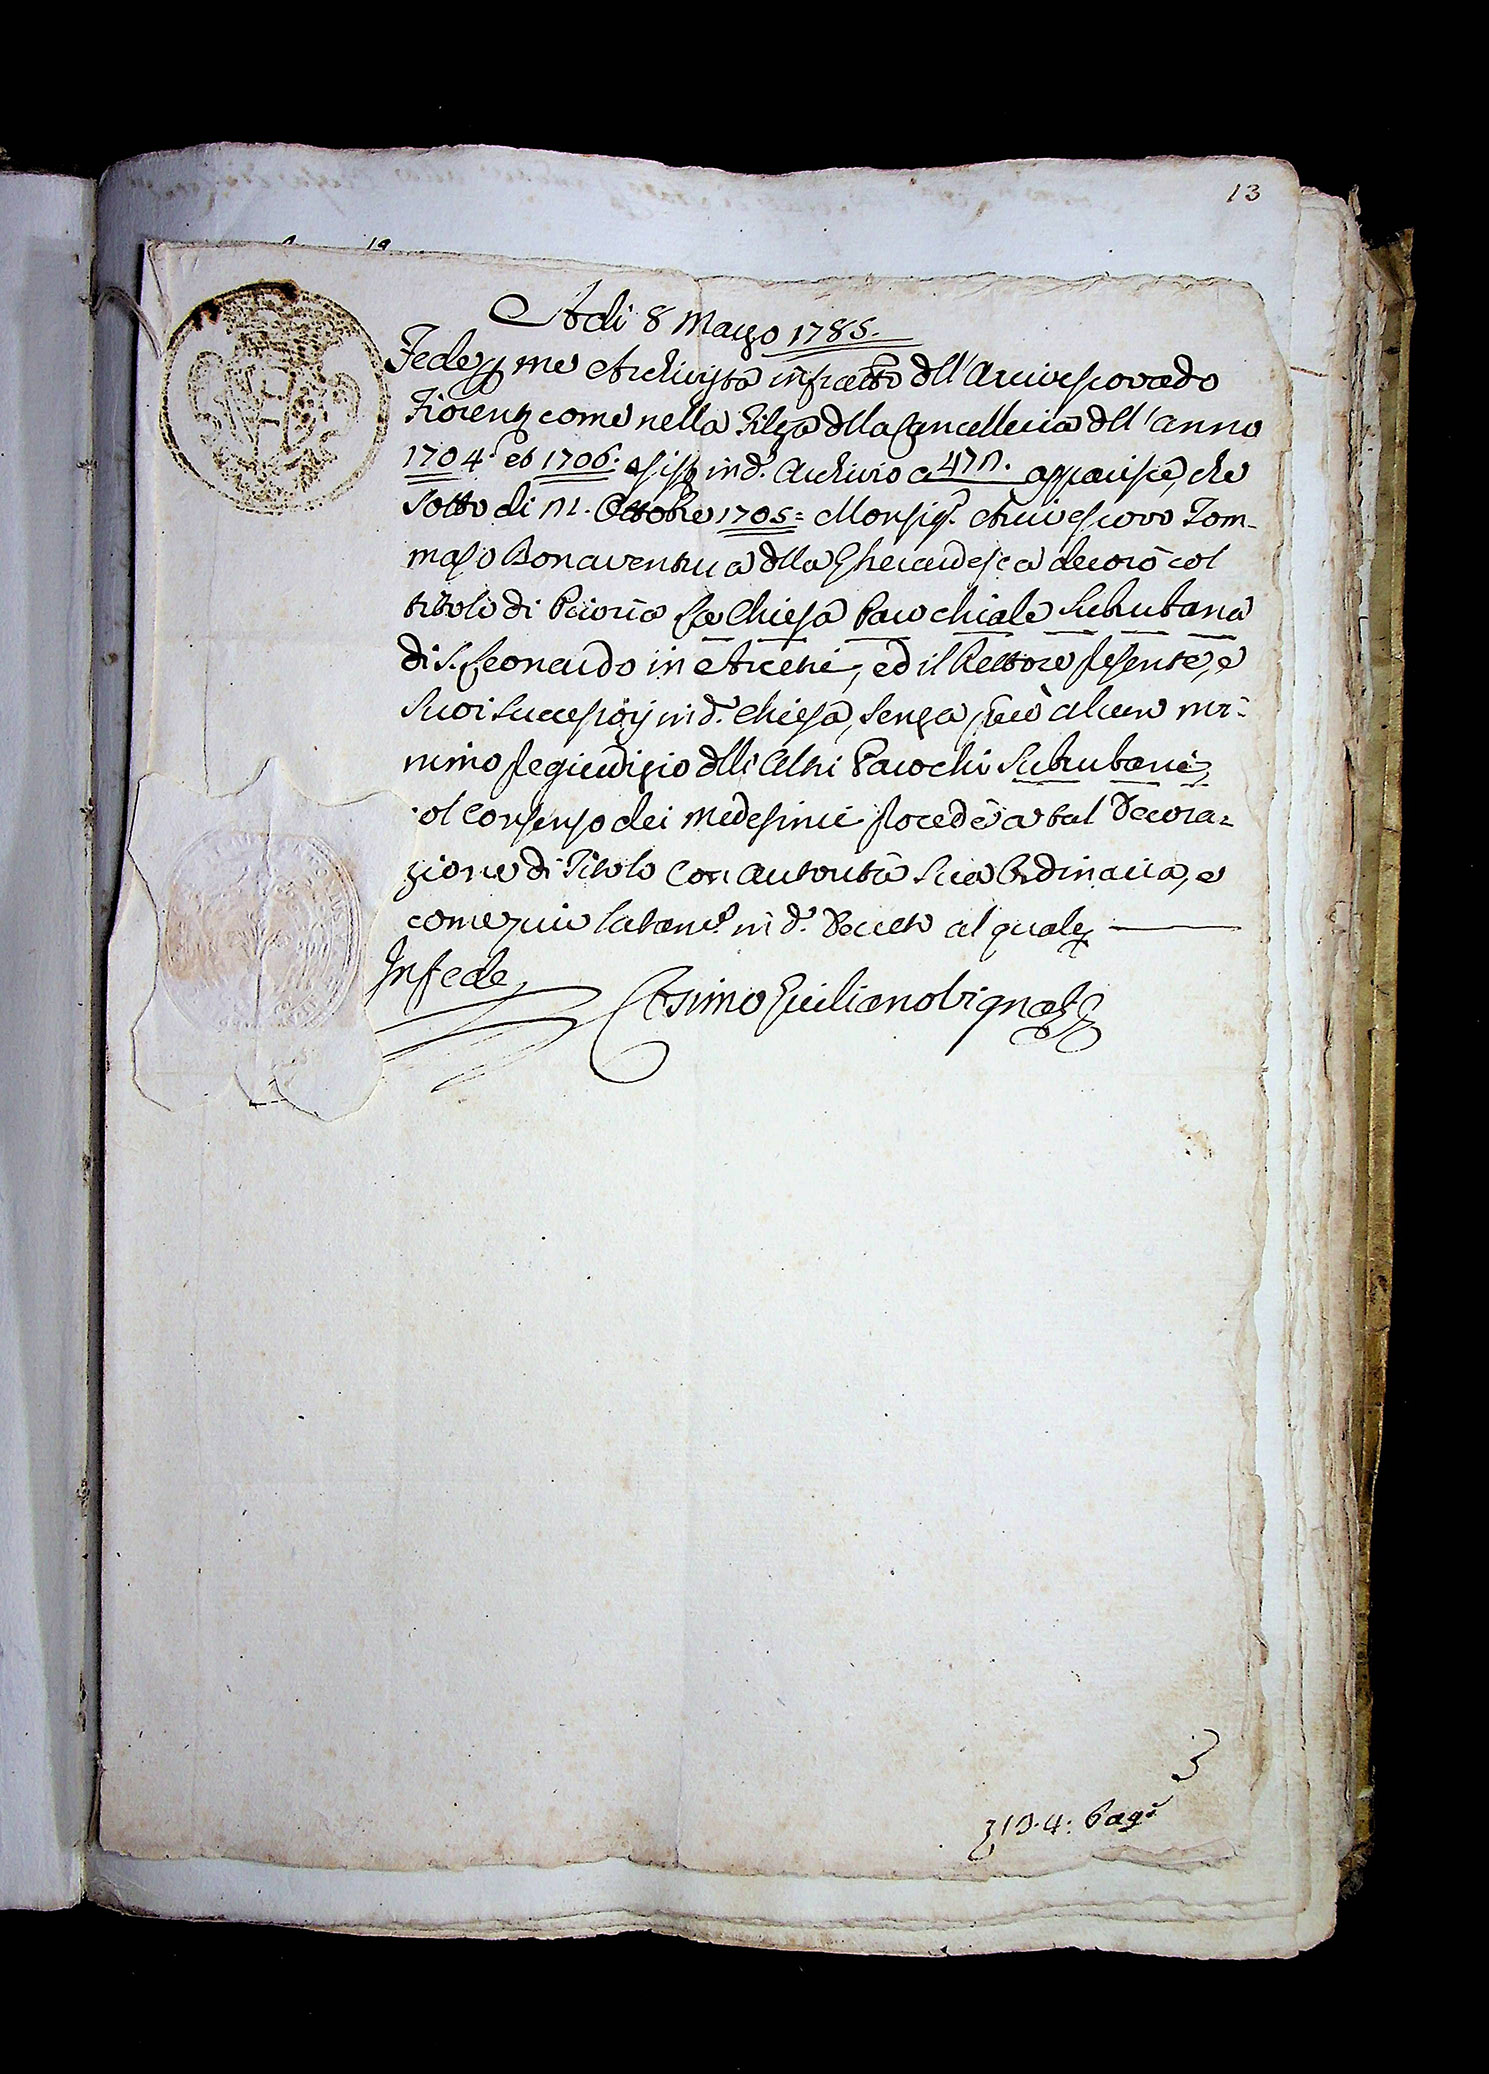 13
Adi 8 Marzo 1785.
Fede p me Archivista infratto dll' Arcivescovado
Fiorenz come nella Filza dlla Cancelleria dll' anno
1704. et 1706. esist in d.o Archivio a 47 . apparisce, che
sotto di . Ottobre 1705 = Monsig.r Arcivescovo Tom-
maso Bonaventura dlla Gherardesca decorò col
titolo di Prioria la Chiesa Parochiale Suburbana
di S. Leonardo in Arcetri, ed il Rettore psente, e
suoi successorj in d.a Chiesa, senza però alcun mi-
nimo pregiudizio dlli altri Parochi Suburbani,
col consenso dei medesimi procedè a tal Decora-
zione di Titolo con autorità sua Ordinaria, e
come più latam.e in d.o Decreto al quale
In fede,
Asimo Giuliano
3
4: Pag.i